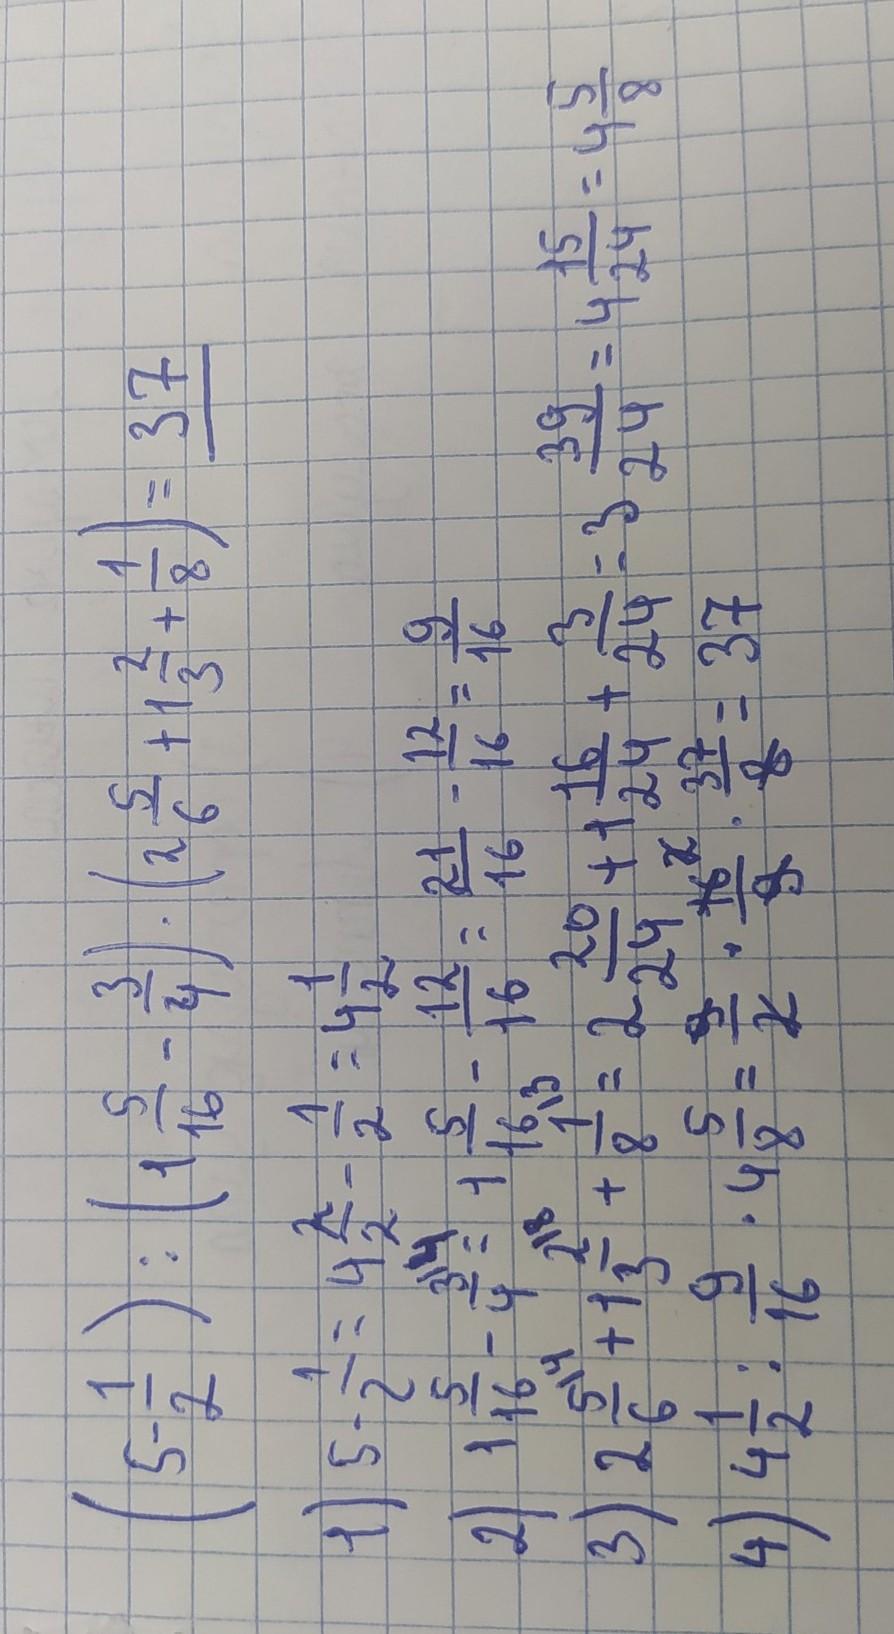 (5 - 1/2) : (1 5/16 - 3/4) · (2 5/6 + 1 2/3 + 1/8) = 37
1) 5 - 1/2 = 4 2/2 - 1/2 = 4 1/2
2) 1 5/16 - 3/4 \4 = 1 5/16 - 12/16 = 21/16 - 12/16 = 9/16
3) 2 5/6 \4 + 1 2/3 \8 + 1/8 \3 = 2 20/24 + 1 16/24 + 3/24 = 3 39/24 = 4 15/24 = 4 5/8
4) 4 1/2 : 9/16 · 4 5/8 = 9/2 · 16/9 2 · 37/8 = 37